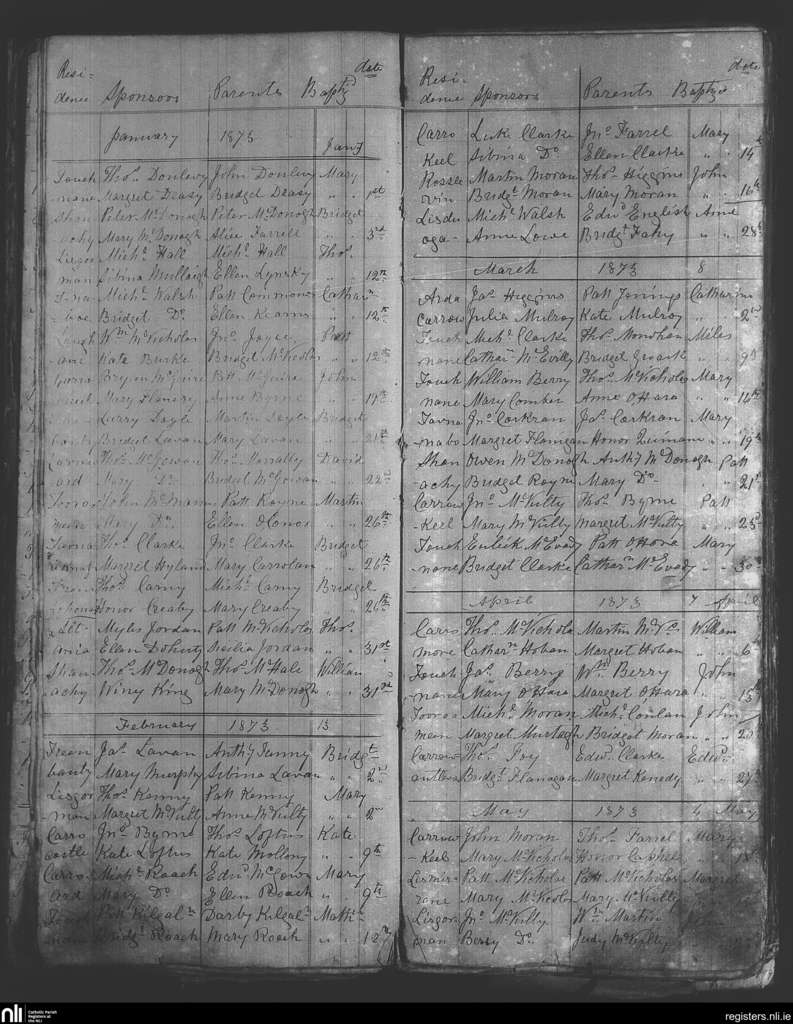 date
Resi-
dence Sponsors Parents Baptd
January 1873 Jany
Touch Thos. Donlevy John Donlevy Mary
nane Margret Deasy Bridget Deasy " " 1st
Shan Peter McDonagh Peter McDonogh Bridget
achy Mary McDonagh Alice Farrell " " 5th
Lisgor Michl. Hall Michl. Hall Thos.
man Sibina Mullaigh Ellen Lynsky " " 12th
Michl. Walsh Patt Commons Cathar
Bridget Do. Ellen Kearns " " 12th
Wm. McNicholas Jno. Joyce Patt
Kate Burke Bridget McNicolas " " 12th
Bryan McGuire Patt McGuire John
Mary Flanery Anne Byrne " " 19th
Larry Doyle Martin Doyle Bridget
Bridget Lavan Mary Lavan " " 21st
Thos. McGowan Thos. David
ard Mary Do. Bridget McGowan " " 22nd
John McMann Patt Kayne Martin
Mary Do. Ellen OConor " " 26th
Tavna Thos. Clarke Jno. Clarke Bridget
Margret Hyland Mary Carrolan " " 26th
Thos. Carny Michl. Carny Bridget
Honor Creaby Mary Creaby " " 26th
Alt- Myles Jordan Patt McNicholas Thos.
aria Ellen Doherty Sicilia Jordan " " 31st
Shan Thos. McDonogh Thos. McHale William
achy Winy King Mary McDonogh " " 31st
February 1873 13
Treen Jas. Lavan Anthy Tunny Bridgt.
bauty Mary Murphy Sibina Lavan " " 2nd
Lisgor Thos. Kenny Patt Kenny Mary
man Margret McNulty Anne McNulty " " 2nd
Carro Jno. Byrne Thos. Loftus Kate
castle Kate Loftus Kate Mollony " " 9th
Carro Michl. Roach Edwd. McGowan Mary
ard Mary Do. Ellen Roach " " 9th
Patt Kilgaln Darby Kilgaln Mathw
Bridgt. Roach Mary Roach " " 12th
date
Resi-
dence Sponsors Parents Baptzd
Carro Luke Clarke Jno. Farrel Mary
Keel Sibina Do. Ellen Clarke " " 14th
Rossle Martin Moran Thos. Higgins John
vin Bridgt. Moran Mary Moran " " 16th
Lisdu Michl. Walsh Edwd. English Anne
oga- Anne Lowe Bridgt. Fahy " " 28th
March 1873 8
Arda Jas. Higgins Patt Jenings Catharine
carrow Julia Mulroy Kate Mulroy " " 2nd
Touch Michl. Clarke Thos. Monohan Miles
nane Cathar. McEvilly Bridget " " 9th
Touch William Berry Thos. McNicholas Mary
nane Mary Comber Anne OHara " " 14th
Tavna Jno. Corkran Jas. Corkran Mary
nabo Margret Flanigan Honor " " 19th
Shan Owen McDonogh Anthy McDonogh Patt
achy Bridget Mary Do. " " 21st
Carrow Jno. McNulty Thos. Byrne Patt
-Keel Mary McNulty Margret McNulty " " 25th
Touch Eulick McEvady Patt OHara Mary
nane Bridget Clarke Cathar. McEvady " " 30th
April 1873 7 April
Carro Thos. McNichola Martin William
more Catharn. Hoban Margret Hoban " " 6th
Touch Jas. Berry Wm. Berry John
nane Mary OHara Margret OHara " 13th
Tooro Michl. Moran Michl. Conlan John
meen Margret Murtagh Bridget Moran " " 20th
Carrow Thos. Foy Edwd. Clarke Edwd.
Bridgt. Flanagan Margret Kenedy " " 27th
May 1873 4 May
Carrow John Moran Thos. Farrel Mary
-Keel Mary McNicholas Honor
Patt McNicholas Patt McNicholas Margret
rone Mary McNicolas Mary McNulty
Lisgor Jno. McNulty Wm. Martin
man Betty Do. Judy McNulty
nli
Catholic Parish
Registers at
the NLI
registers.nli.ie